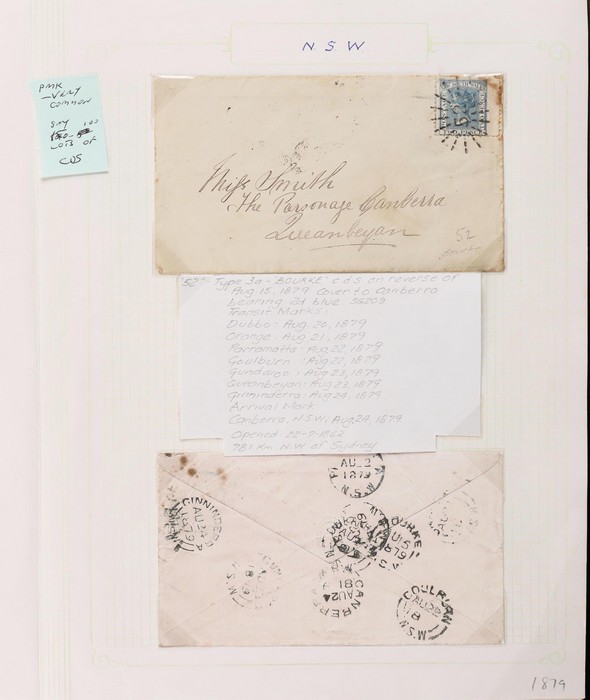 NSW
PMK
- VERY
COMMON
SAY 100
LOTS OF
CDS
Miss Smith
The Parsonage Canberra
Queanbeyan
52
"52" Type 3a - BOURKE cds on reverse of
Aug 15, 1879 cover to Canberra
bearing 2d blue SG209
Transit Marks:
Dubbo: Aug 20, 1879
Orange: Aug 21, 1879
Parramatta: Aug 22, 1879
Goulburn: Aug 22, 1879
Gundaroo: Aug 23, 1879
Queanbeyan: Aug 23, 1879
Ginninderra: Aug 24, 1879
Arrival Mark
Canberra, N.S.W, Aug 24, 1879
Opened 22-7-1862
781 Km N.W of Sydney
AU 2
1879
N.S.W
GINNINDERRA
AU 24
1879
BOURKE
AU 15
1879
CANBERRA
AU 24
GOULBURN
AU 22
18
N.S.W
1879